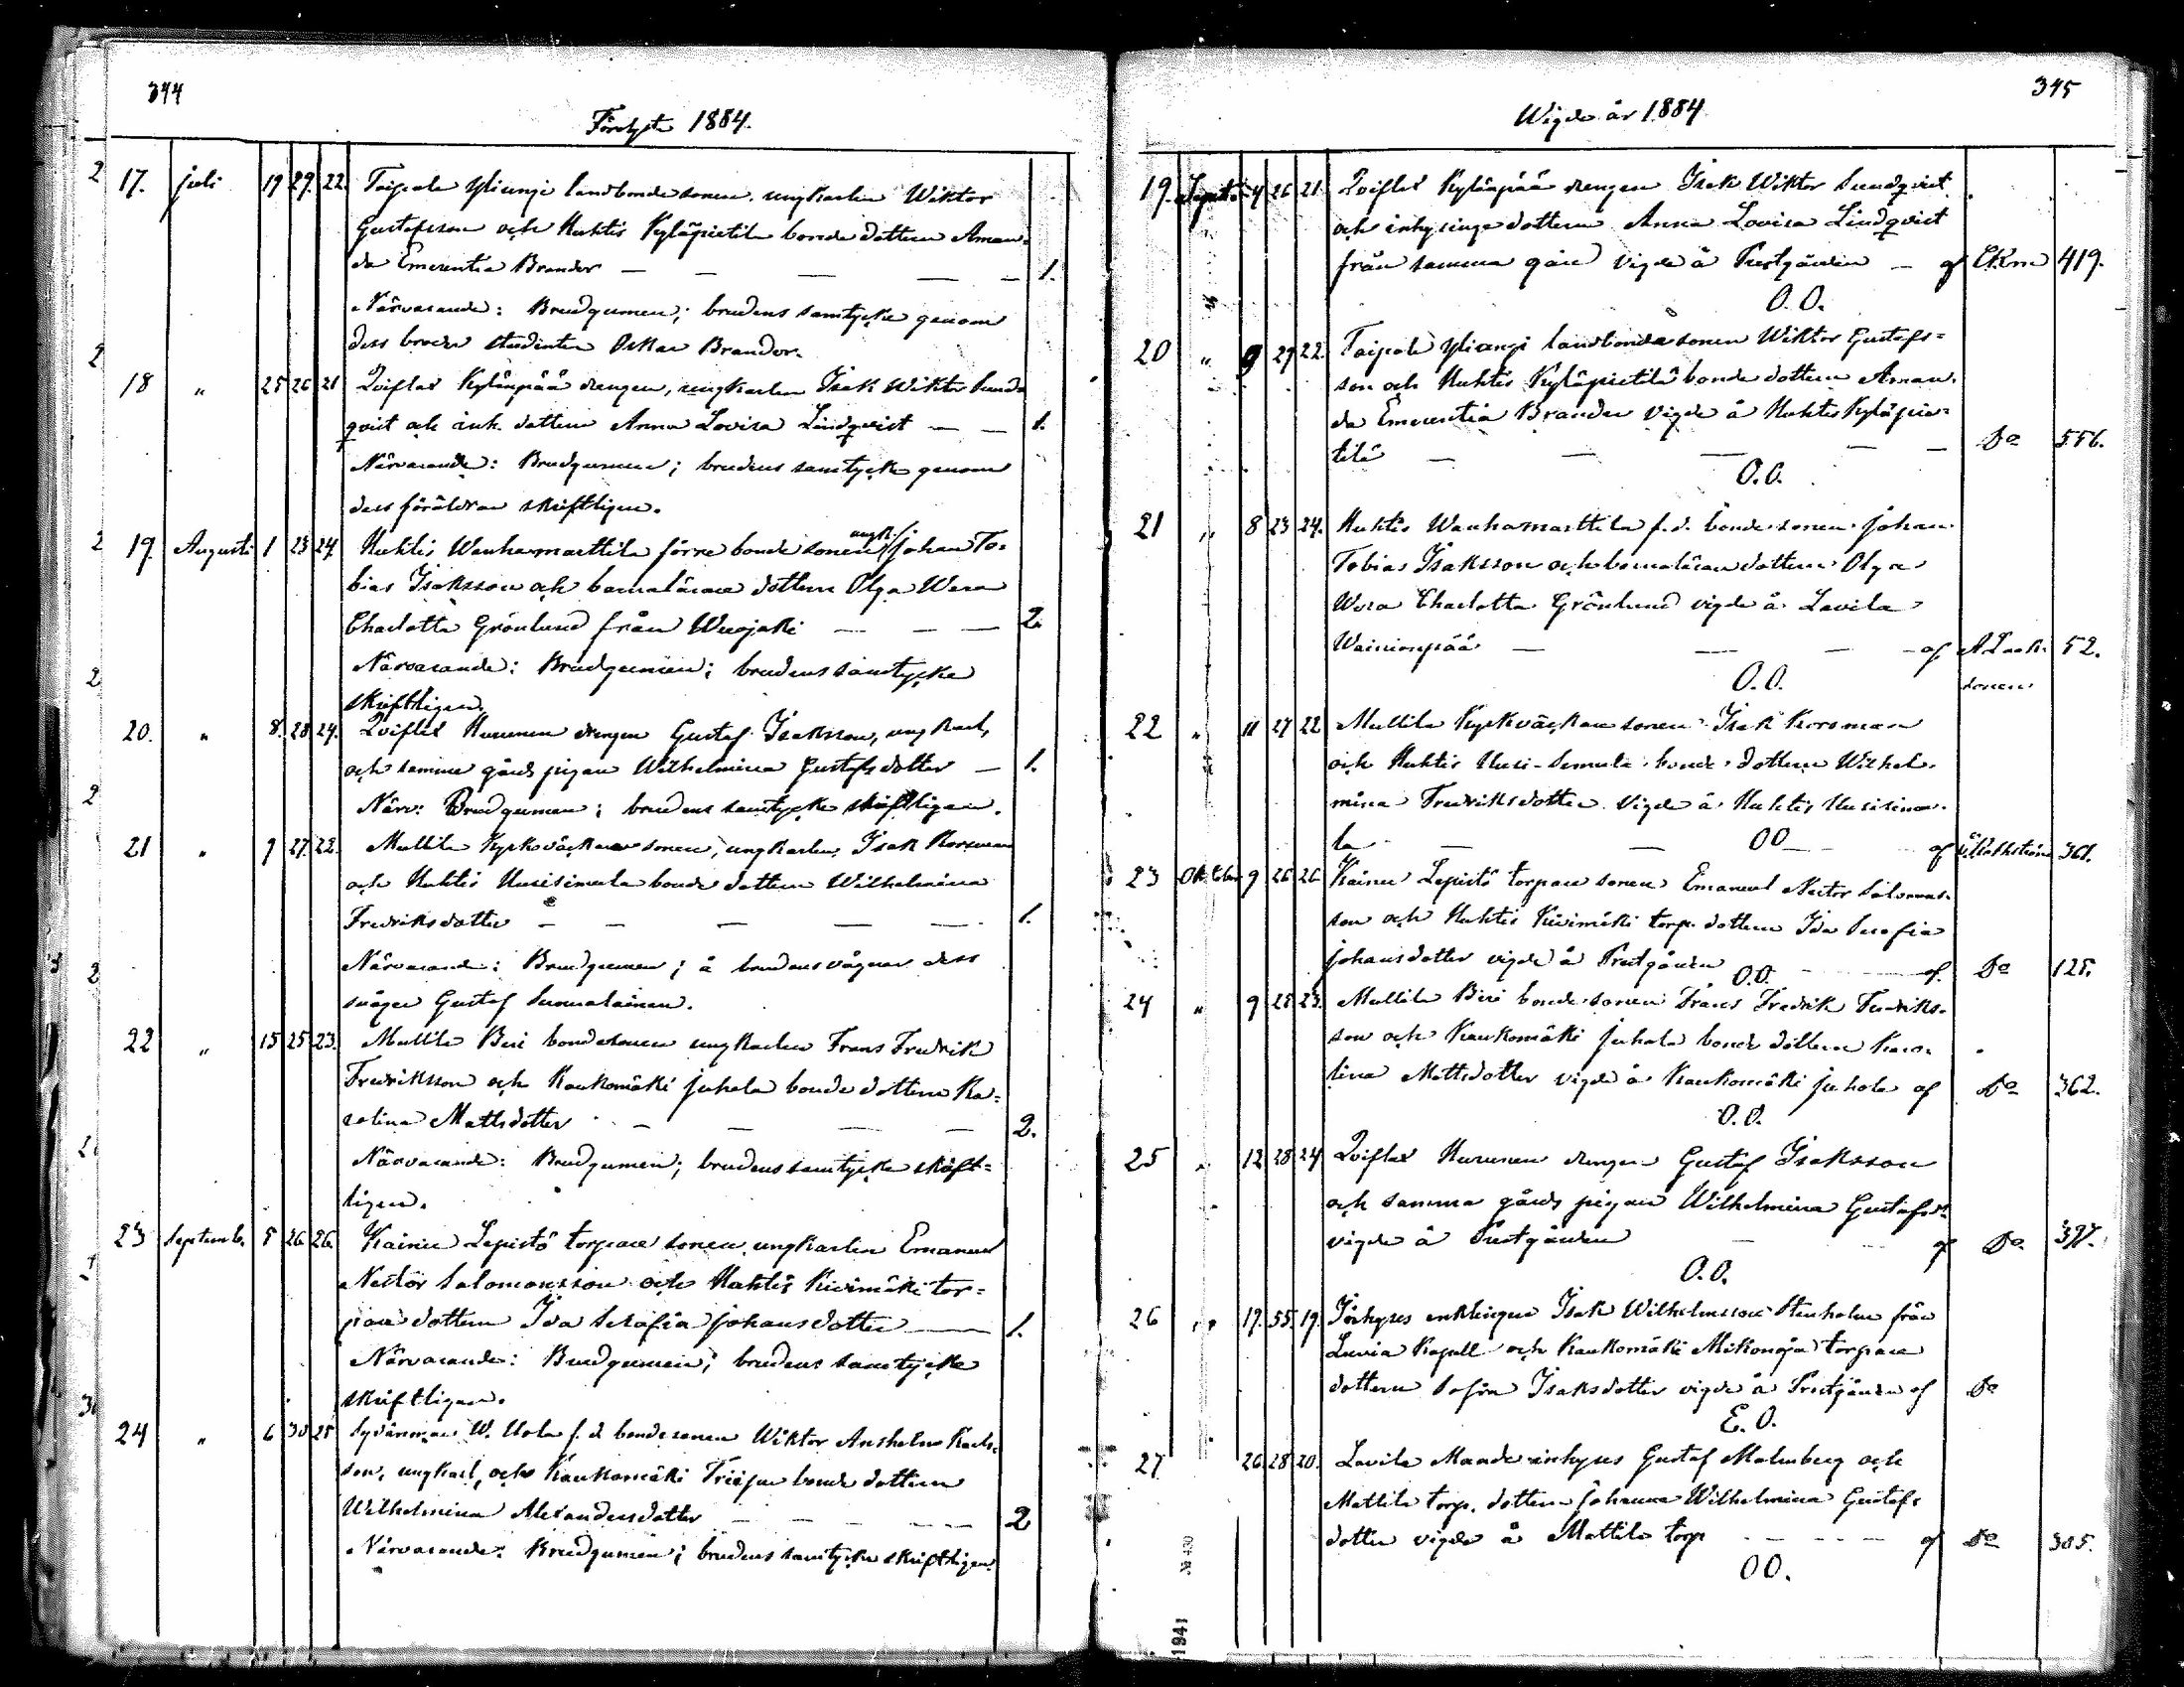 344
Förelyste 1884.
17. juli 19 29. 22. Taipale Yliangi landbonde sonen, ungkarlen Wiktor
Gustafsson och Huhtis Kyläpietilä bonde dottern Aman=
da Emerentia Brander — — — — — 1.
Närvarande: Brudgumen; brudens samtycke genom
dess broder studenten Oskar Brander.
18 " 25 26 21 Qviflax Kylänpää drengen, ungkarlen Isak Wiktor Sund=
qvist och inh. dottern Anna Lovisa Lindqvist — — 1.
Närvarande: Brudgumen; brudens samtycke genom
dess föräldrar skriftligen.
19 Augusti 1 23 24. Huhtis Wanhamarttila förre bonde sonen ungk. Johan To=
bias Isaksson och barnalärare dottern Olga Wera
Charlotta Grönlund från — — — 2.
Närvarande: Brudgumen; brudens samtycke
skriftligen.
20. " 8. 28 24. Qviflax Hurunen drengen Gustaf Isaksson, ungkarl,
och samma gårds pigan Wilhelmina Gustafsdotter — 1.
Närv: Brudgumen; brudens samtycke skriftligen.
21 " 9 27. 22. Mullila Kyrkoväktare sonen, ungkarlen, Isak Korsman
och Huhtis Uusisimula bonde dottern Wilhelmina
Fredriksdotter — — — — — 1.
Närvarande: Brudgumen; å brudens vägnar dess
svåger Gustaf
22 " 15 25 23. Mullila Biri bondesonen ungkarlen Frans Fredrik
Fredriksson och Kaukomäki Juhola bonde dottern Ka=
rolina Mattsdotter — — — — 2.
Närvarande: Brudgumen; brudens samtycke skrift=
ligen.
23 Septemb. 5 26 26. Kainu Lepistö torpare sonen ungkarlen Emanuel
Nestor Salomonsson och Huhtis Kivimäki tor=
pare dottern Ida Serafia Johansdotter — 1.
Närvarande: Brudgumen; brudens samtycke
skriftligen.
24 " 6 30 25 W. Uola f. d. bondesonen Wiktor Anshelm Karls=
son, ungkarl, och Kaukomäki bonde dottern
Wilhelmina Alexandersdotter — — — — 2
Närvarande: Brudgumen; brudens samtycke skriftligen.
345
Wigde år 1884
19. Septbr 4 26 21. Qviflax Kylänpää drengen Isak Wiktor Sundqvist
och inhysinge dottern Anna Lovisa Lindqvist
från samma gård vigde å Prestgården — af 419.
O.O.
20 " 9 29 22. Taipale Yliangi landbonde sonen Wiktor Gustafs=
son och Huhtis Kyläpietilä bonde dottern Aman=
da Emerentia Brander vigde å Huhtis Kyläpie=
tilä — — — — Do 556.
O.O.
21 " 8 23 24. Huhtis Wanhamarttila f. d. bonde sonen Johan
Tobias Isaksson och barnalärare dottern Olga
Wera Charlotta Grönlund vigde å Lavila
Wainionpää — — — — af 52.
O.O.
22 " 11 27 22 Mullila Kyrkoväktare sonen Isak Korsman
och Huhtis Uusi-Simula bonde dottern Wilhel=
mina Fredriksdotter vigde å Huhtis Uusisimu=
la — — OO af 361.
23 Oktober 9 26 26 Kainu Lepistö torpare sonen Emanuel Nestor Salomons=
son och Huhtis Kivimäki torp. dottern Ida Serafia
Johansdotter vigde å Prestgården O.O. af Do 125.
24 " 9 25 23. Mullila Biri bonde sonen Frans Fredrik Fredriks=
son och Kaukomäki Juhola bonde dottern Karo=
lina Mattsdotter vigde å Kaukomäki Juhola af Do 362.
O.O.
25 " 12 28 24 Qviflax Hurunen drengen Gustaf Isaksson
och samma gårds pigan Wilhelmina Gustafsdr
vigde å Prestgården — af Do
O.O.
26 " 19. 55. 19. Inhyses enklingen Isak Wilhelmsson Stenholm från
Luvia Kapell och Kaukomäki Mikonoja torpare
dottern Sofia Isaksdotter vigde å Prestgården af Do
E.O.
27 26 28 20. Lavila inhyses Gustaf Malmberg och
Mattila torp. dottern Johanna Wilhelmina Gustafs
dotter vigde å Mattila torp — — — af Do 305.
OO.
1941